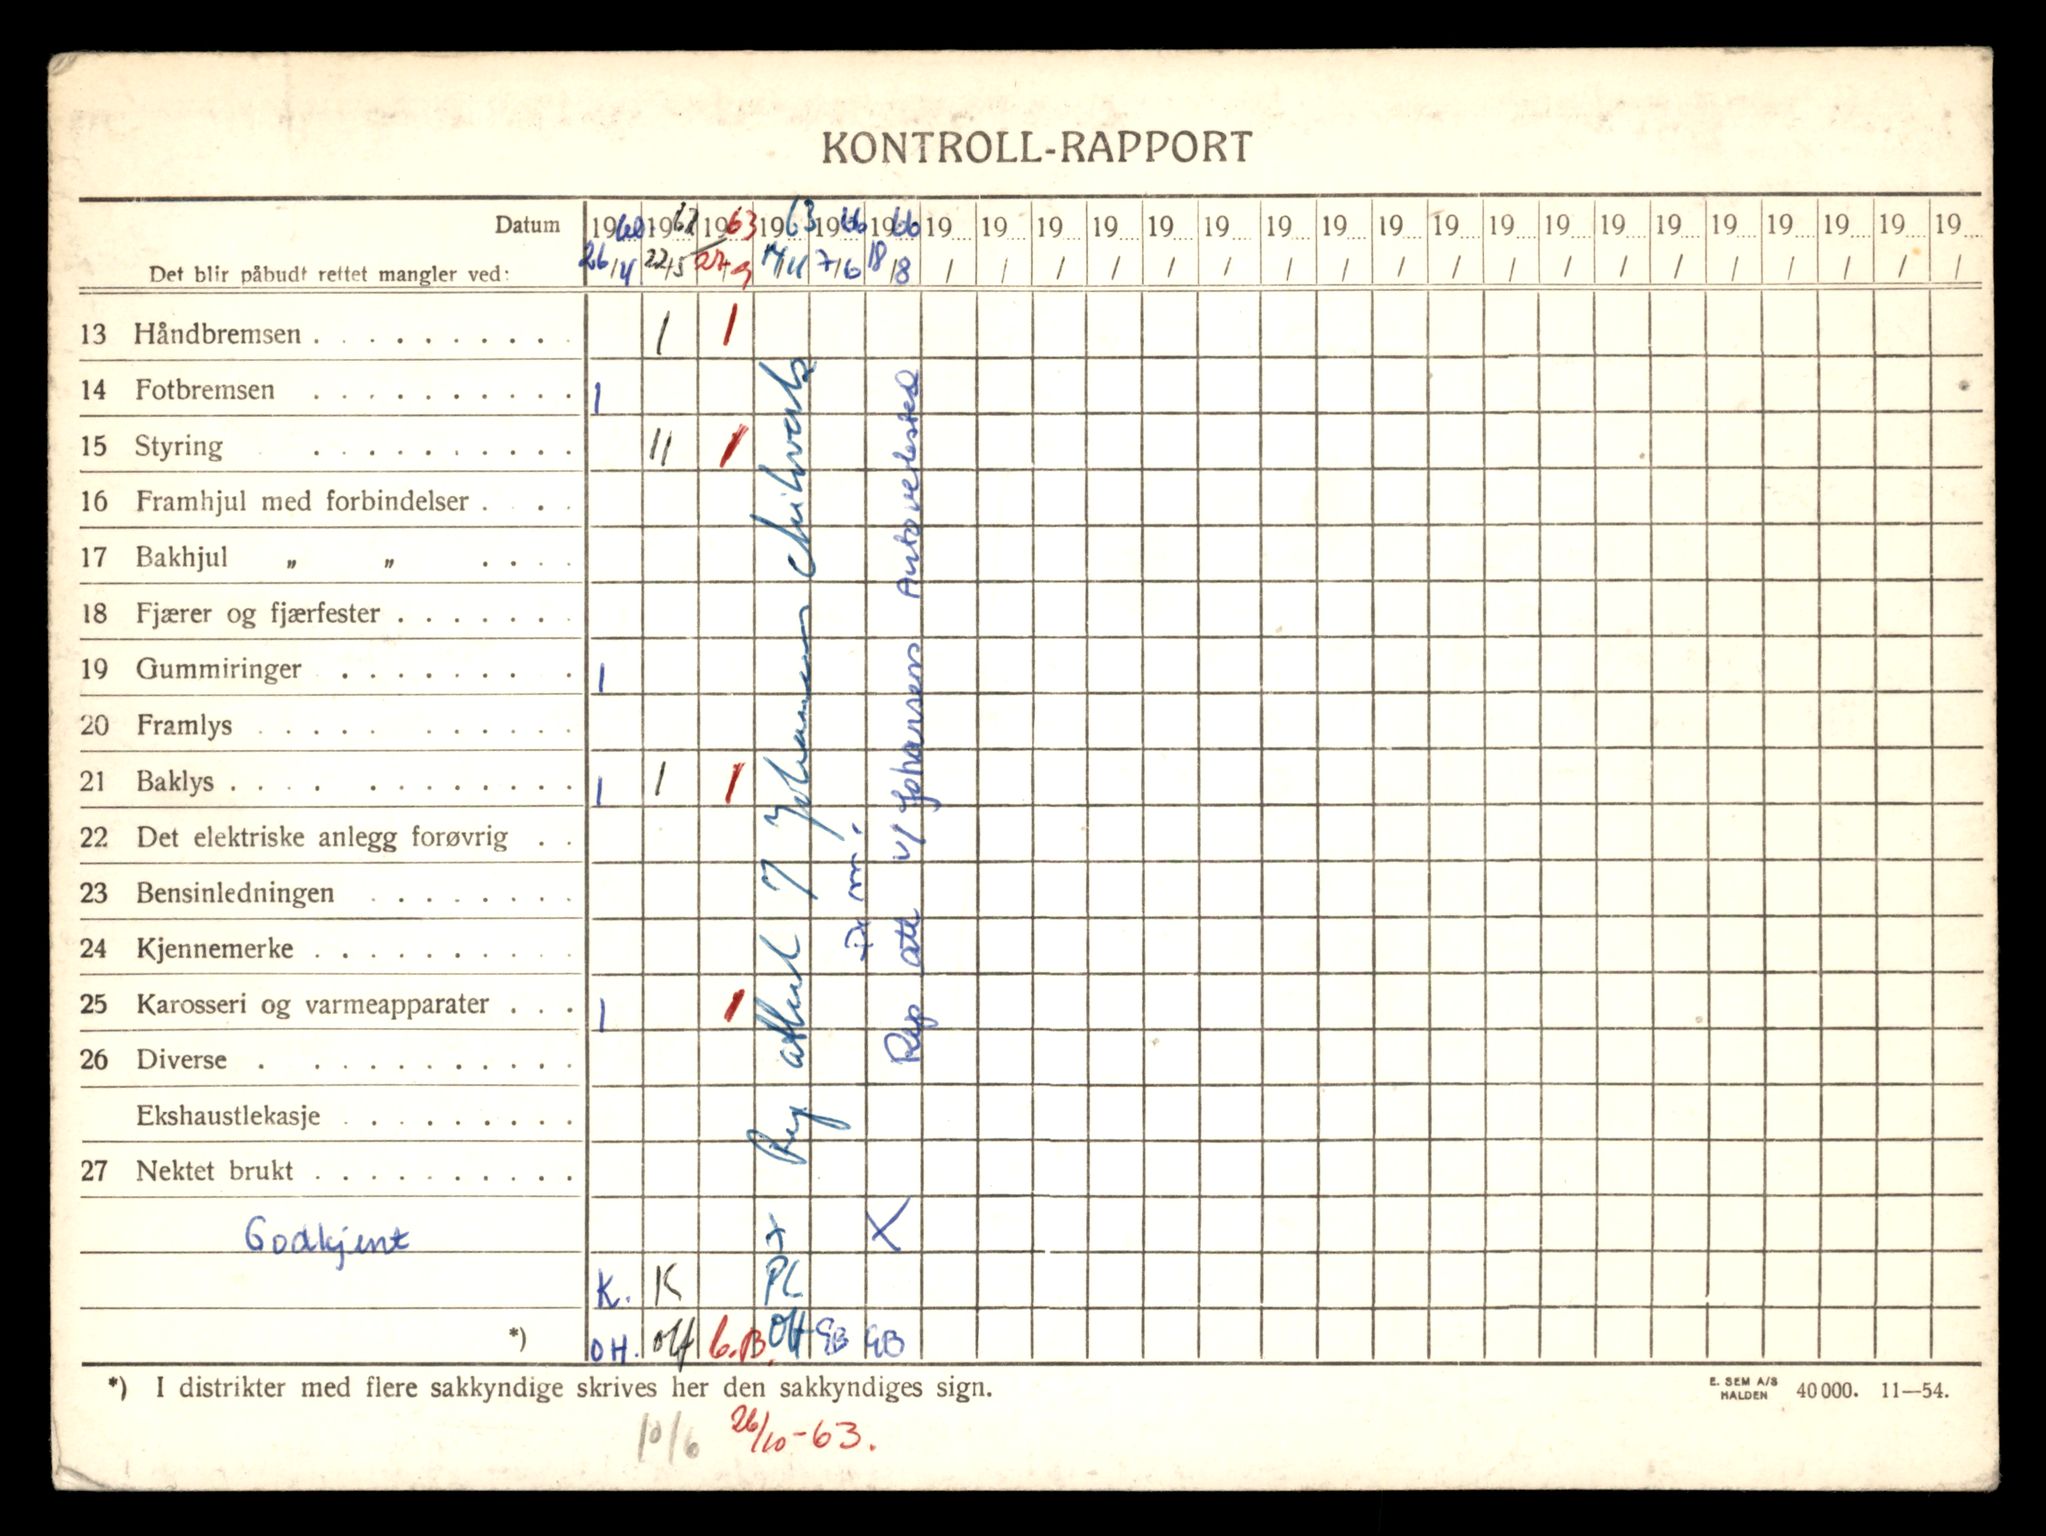 KONTROLL-RAPPORT
Datum 1960 1962 1963 1963 1966 1966 19 19 19 19 19 19 19 19 19 19 19 19 19 19 19 19 19 19 19
Det blir påbudt rettet mangler ved: 26/4 22/5 27/9 14/11 7/6 18/8 / / / / / / / / / / / / / / / / / / /
13 Håndbremsen . . . . . . . . . . I I
14 Fotbremsen . . . . . . . . . . I
15 Styring . . . . . . . . . . II I
16 Framhjul med forbindelser . . .
17 Bakhjul " " . . . .
18 Fjærer og fjærfester . . . . . . .
19 Gummiringer . . . . . . . . I
20 Framlys . . . . . . . . . .
21 Baklys . . . . . . . . . . . . I I I
22 Det elektriske anlegg forøvrig . .
23 Bensinledningen . . . . . . . .
24 Kjennemerke . . . . . . . . . .
25 Karosseri og varmeapparater . . . I I
26 Diverse . . . . . . . . . . .
Ekshaustlekasje . . . . . . . . .
27 Nektet brukt . . . . . . . . . .
J Johansen
Rep att v/ Johansens Autoverksted
Godkjent + X
K. K PL
*) OH. OH G.B. OH GB GB
*) I distrikter med flere sakkyndige skrives her den sakkyndiges sign.
E. SEM A/S
HALDEN 40 000. 11—54.
10/6 26/10-63.